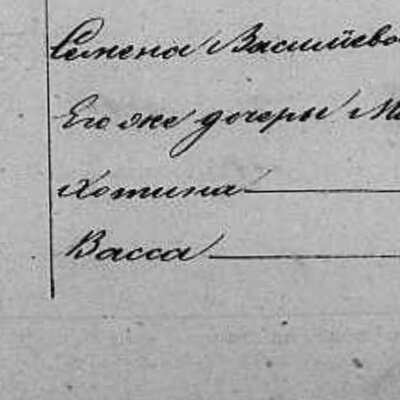 Семена Василйево
Его же дочеры Ма
Хотина
Васса